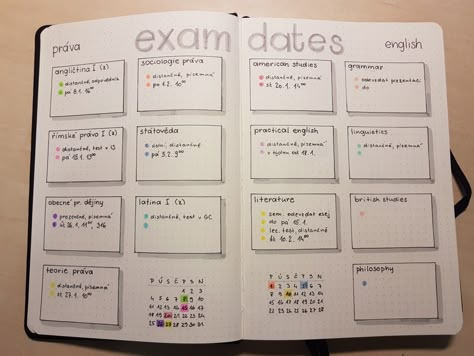 exam dates
práva
english
angličtina I (z)
distančně, odpovědník
pá 8.1. 16⁰⁰
sociologie práva
distančně, písemná
po 1.2. 10⁰⁰
římské právo I (z)
distančně, test v IS
pá 15.1. 13⁰⁰
státověda
ústní, distančně
pá 5.2. 9⁰⁰
obecné pr. dějiny
prezenčně, písemná
út 26.1., 11⁰⁰, 316
latina I (z)
distančně, test v GC
teorie práva
distančně, písemná
st 27.1. 10⁰⁰
P Ú S Č P S N
1 2 3
4 5 6 7 8 9 10
11 12 13 14 15 16 17
18 19 20 21 22 23 24
25 26 27 28 29 30 31
american studies
distančně, písemná
st 20.1. 14⁰⁰
grammar
odevzdat prezentaci
do
practical english
distančně, písemná
v týdnu od 18.1.
linguistics
distančně, písemná
literature
sem. odevzdat esej
do pá 15.1.
lec. test, distančně
st 10.2. 14⁰⁰
british studies
philosophy
P Ú S Č P S N
1 2 3 4 5 6 7
8 9 10 11 12 13 14
15 16 17 18 19 20 21
22 23 24 25 26 27 28